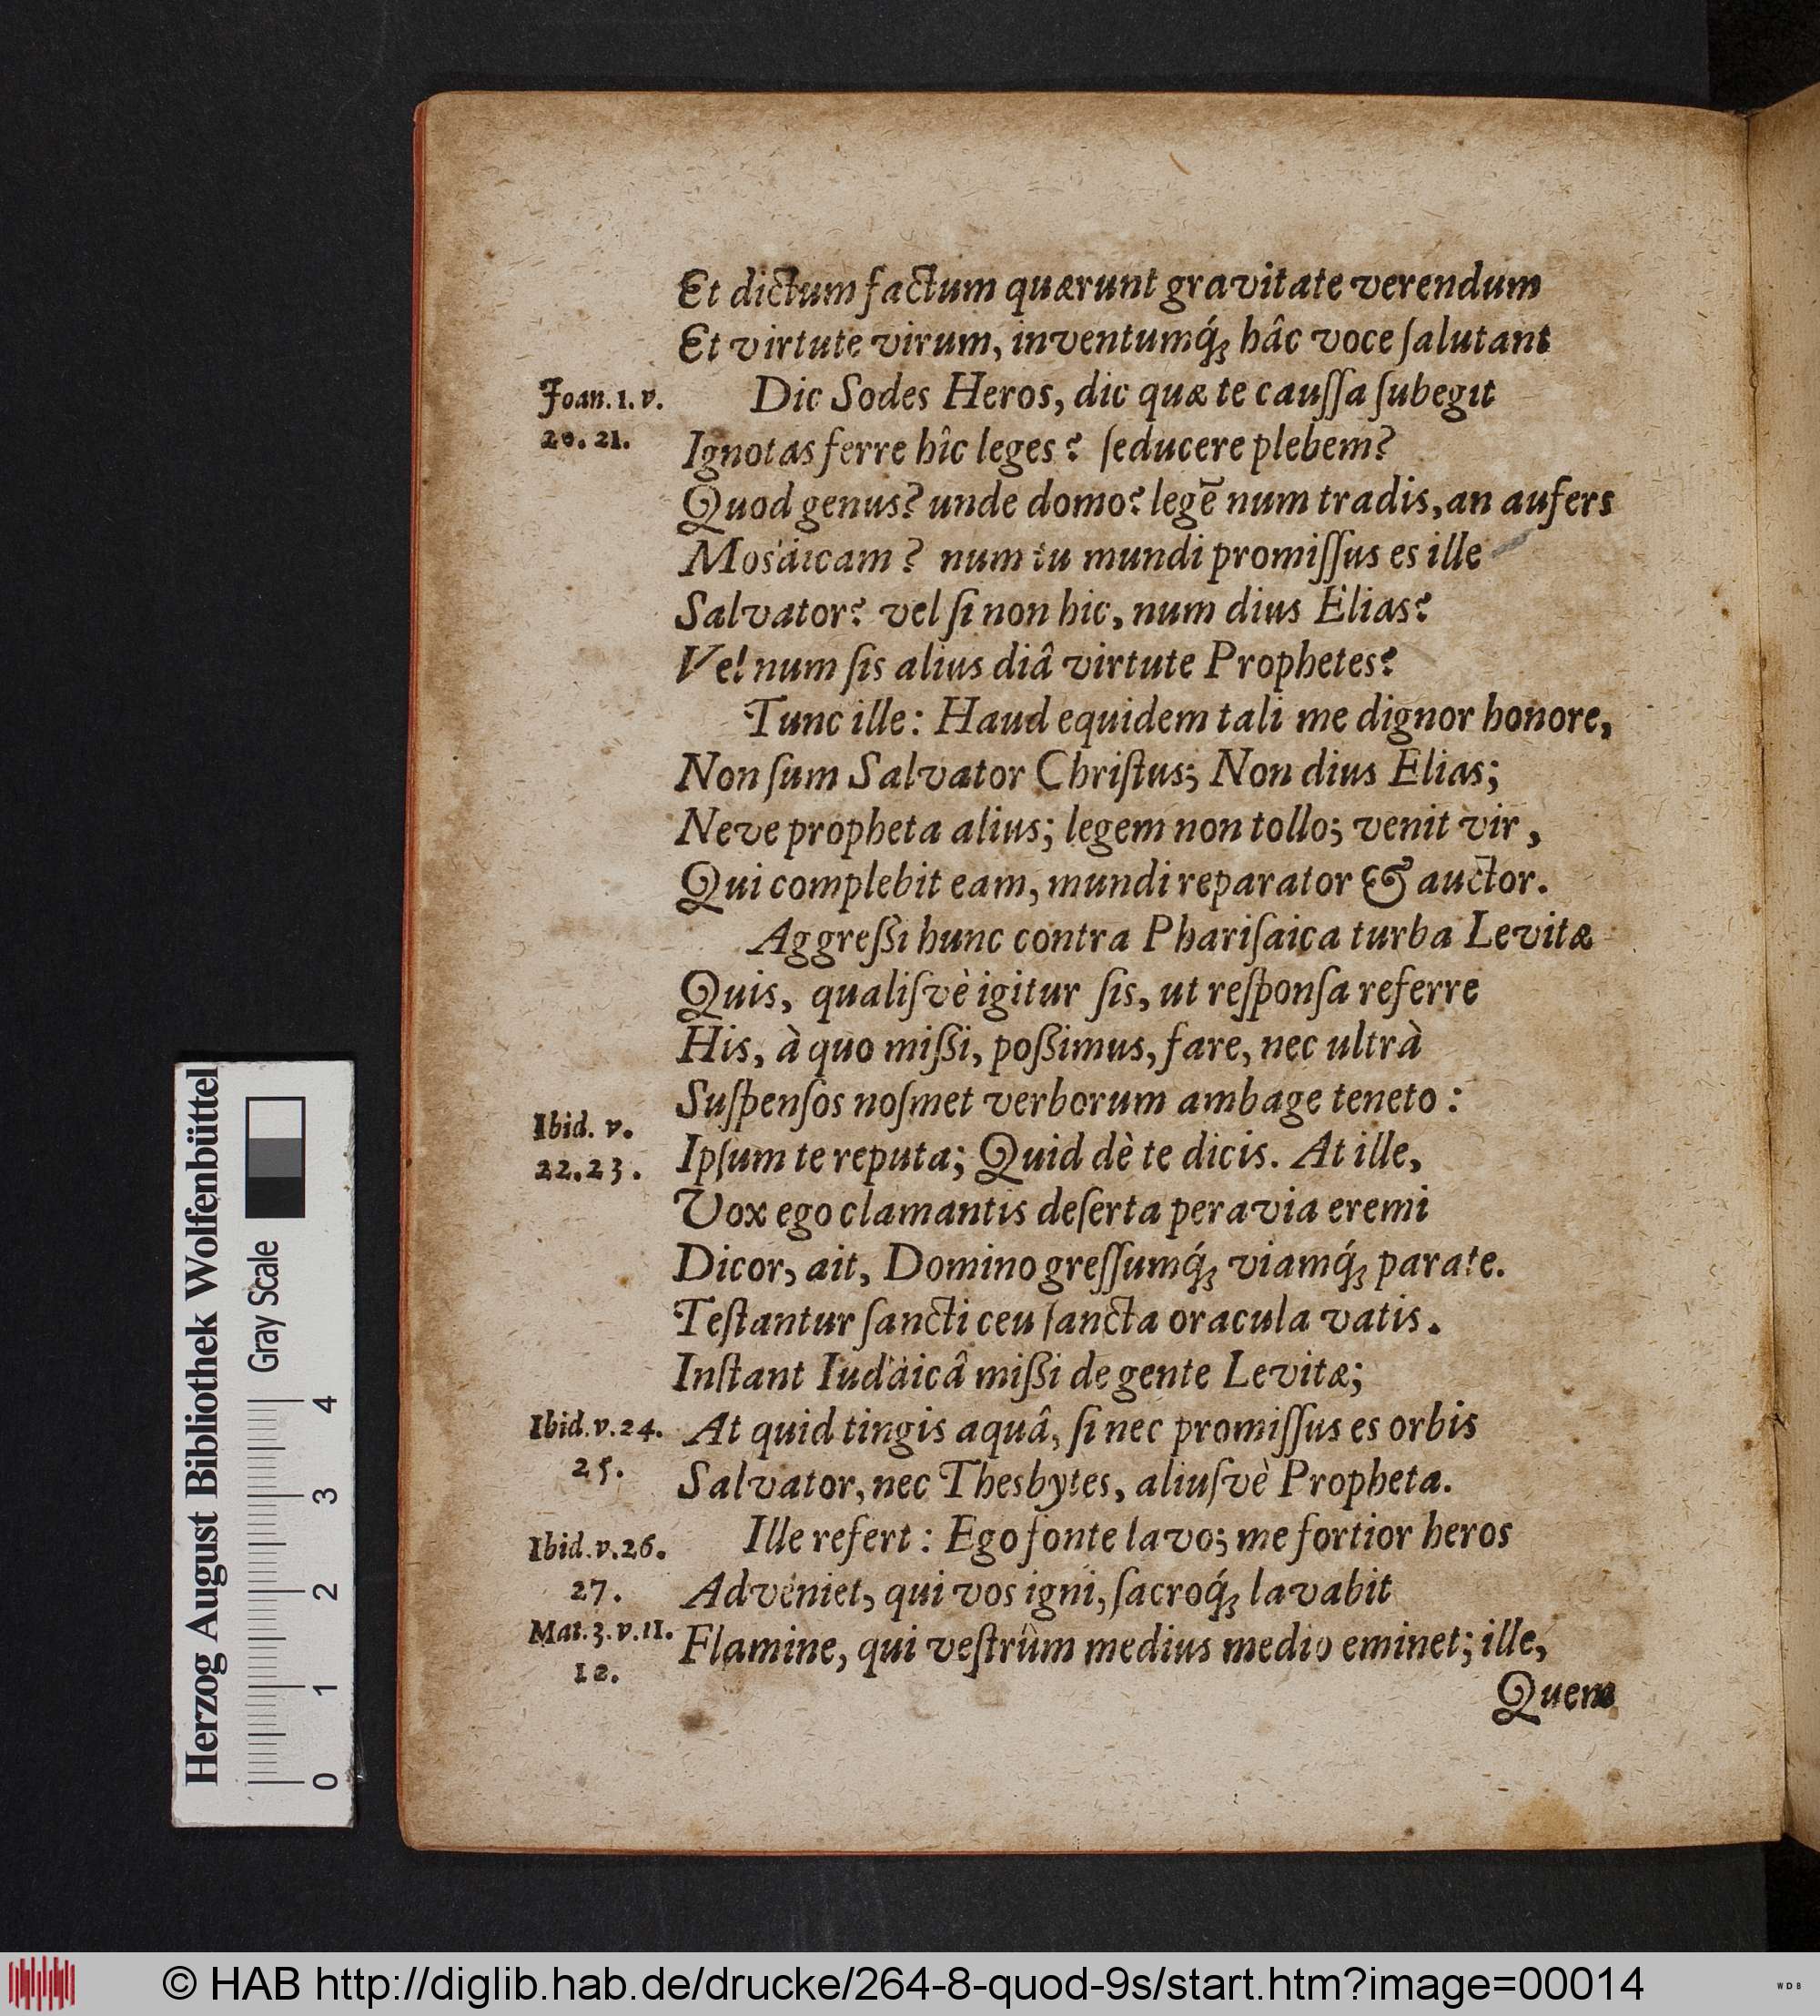 Et dictum factum quærunt gravitate verendum
Et virtute virum, inventumq́; hâc voce ſalutant
Joan. 1. v.
20. 21.
Dic Sodes Heros, dic quæ te cauſſa ſubegit
Ignotas ferre hîc leges? ſeducere plebem?
Quod genus? unde domo? legē num tradis, an aufers
Mosäicam? num tu mundi promiſſus es ille
Salvator? vel ſi non hic, num dius Elias?
Vel num ſis alius diâ virtute Prophetes?
Tunc ille: Haud equidem tali me dignor honore,
Non ſum Salvator Chriſtus; Non dius Elias;
Neve propheta alius; legem non tollo; venit vir,
Qui complebit eam, mundi reparator & auctor.
Aggreßi hunc contra Phariſaica turba Levitæ
Quis, qualiſvè igitur ſis, ut reſponſa referre
His, à quo mißi, poßimus, fare, nec ultrà
Suſpenſos noſmet verborum ambage teneto:
Ibid. v.
22. 23.
Ipſum te reputa; Quid dè te dicis. At ille,
Vox ego clamantis deſerta per avia eremi
Dicor, ait, Domino greſſumq́; viamq́; parate.
Teſtantur ſancti ceu ſancta oracula vatis.
Inſtant Iudäicâ mißi de gente Levitæ;
Ibid. v. 24.
25.
At quid tingis aquâ, ſi nec promiſſus es orbis
Salvator, nec Thesbytes, aliuſvè Propheta.
Ibid. v. 26.
27.
Ille refert: Ego fonte lavo; me fortior heros
Adveniet, qui vos igni, ſacroq́; lavabit
Mat. 3. v. 11.
12.
Flamine, qui veſtrûm medius medio eminet; ille,
Quem
Herzog August Bibliothek Wolfenbüttel
Gray Scale
0 1 2 3 4
© HAB http://diglib.hab.de/drucke/264-8-quod-9s/start.htm?image=00014
WDB